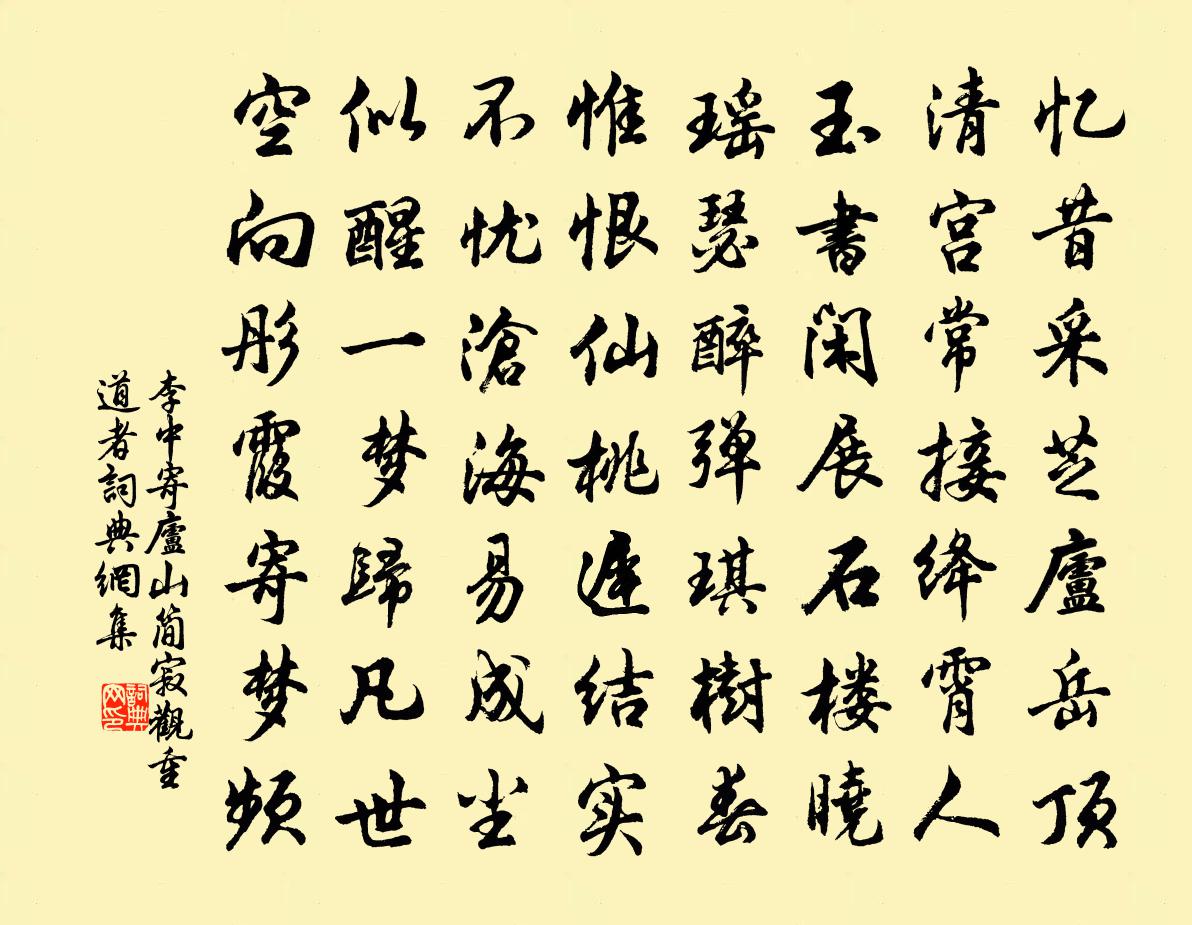 忆昔采芝廬岳顶
清宫常接绛霄人
玉書闲展石楼曉
瑶瑟醉弹琪樹春
惟恨仙桃遲结实
不忧滄海易成尘
似醒一梦歸凡世
空向彤霞寄梦频
李中寄廬山简寂觀重
道者詞典網集
詞典
网印